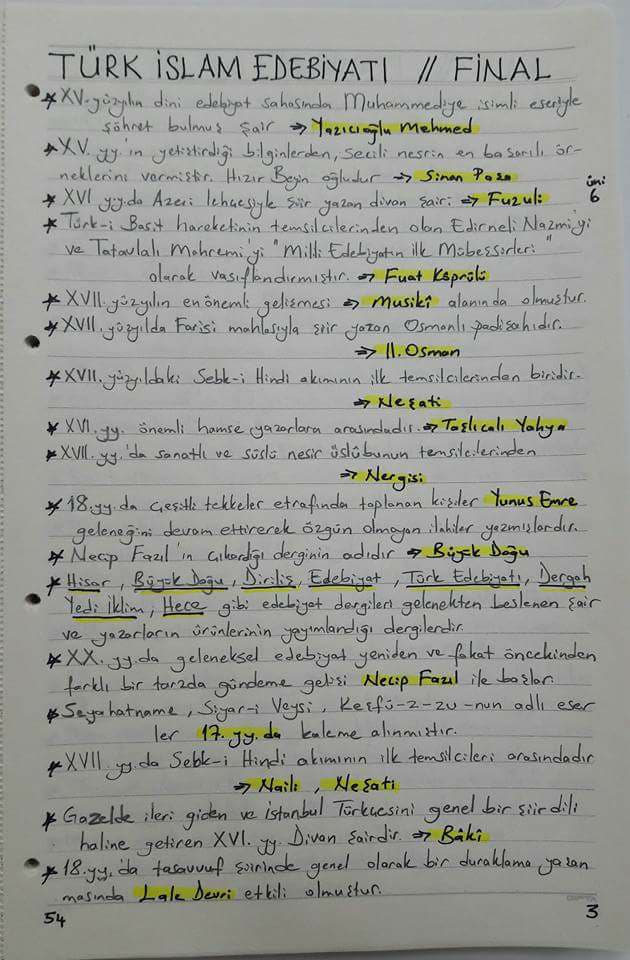 TÜRK İSLAM EDEBİYATI // FİNAL
* XV. yüzyılın dini edebiyat sahasında Muhammediye isimli eseriyle
şöhret bulmuş şair ⇒ Yazıcıoğlu Mehmed
* XV. yy.'ın yetiştirdiği bilginlerden, secili nesrin en başarılı ör-
neklerini vermiştir. Hızır Beyin oğludur ⇒ Sinan Paşa
* XVI y.y.da Azeri lehçesiyle şiir yazan divan şairi ⇒ Fuzuli
üni
6
* Türk-i Basit hareketinin temsilcilerinden olan Edirneli Nazmi'yi
ve Tatavlalı Mahremi'yi "Milli Edebiyatın ilk Mübeşşirleri"
olarak vasıflandırmıştır. ⇒ Fuat Köprülü
* XVII. yüzyılın en önemli gelişmesi ⇒ Musikî alanında olmuştur.
* XVII. yüzyılda Farisi mahlasıyla şiir yazan Osmanlı padişahıdır.
⇒ II. Osman
* XVII. yüzyıldaki Sebk-i Hindi akımının ilk temsilcilerinden biridir.
⇒ Neşati
* XVI. yy. önemli hamse yazarları arasındadır. ⇒ Taşlıcalı Yahya
* XVII. yy.'da sanatlı ve süslü nesir üslûbunun temsilcilerinden
⇒ Nergisi
* 18.yy.da çeşitli tekkeler etrafında toplanan kişiler Yunus Emre
geleneğini devam ettirerek özgün olmayan ilahiler yazmışlardır.
* Necip Fazıl'ın çıkardığı derginin adıdır ⇒ Büyük Doğu
* Hisar, Büyük Doğu, Diriliş, Edebiyat, Türk Edebiyatı, Dergah
Yedi İklim, Hece gibi edebiyat dergileri gelenekten beslenen şair
ve yazarların ürünlerinin yayımlandığı dergilerdir.
* XX. yy.da geleneksel edebiyat yeniden ve fakat öncekinden
farklı bir tarzda gündeme gelişi Necip Fazıl ile başlar.
* Seyahatname, Siyar-i Veysi, Keşfü-z-zu-nun adlı eser
ler 17. yy.da kaleme alınmıştır.
* XVII. yy.da Sebk-i Hindi akımının ilk temsilcileri arasındadır
⇒ Naili, Neşati
* Gazelde ileri giden ve İstanbul Türkçesini genel bir şiir dili
haline getiren XVI. yy. Divan şairdir. ⇒ Bâkî
* 18.yy.'da tasavvuf şiirinde genel olarak bir duraklama yaşan
masında Lale Devri etkili olmuştur.
54
3